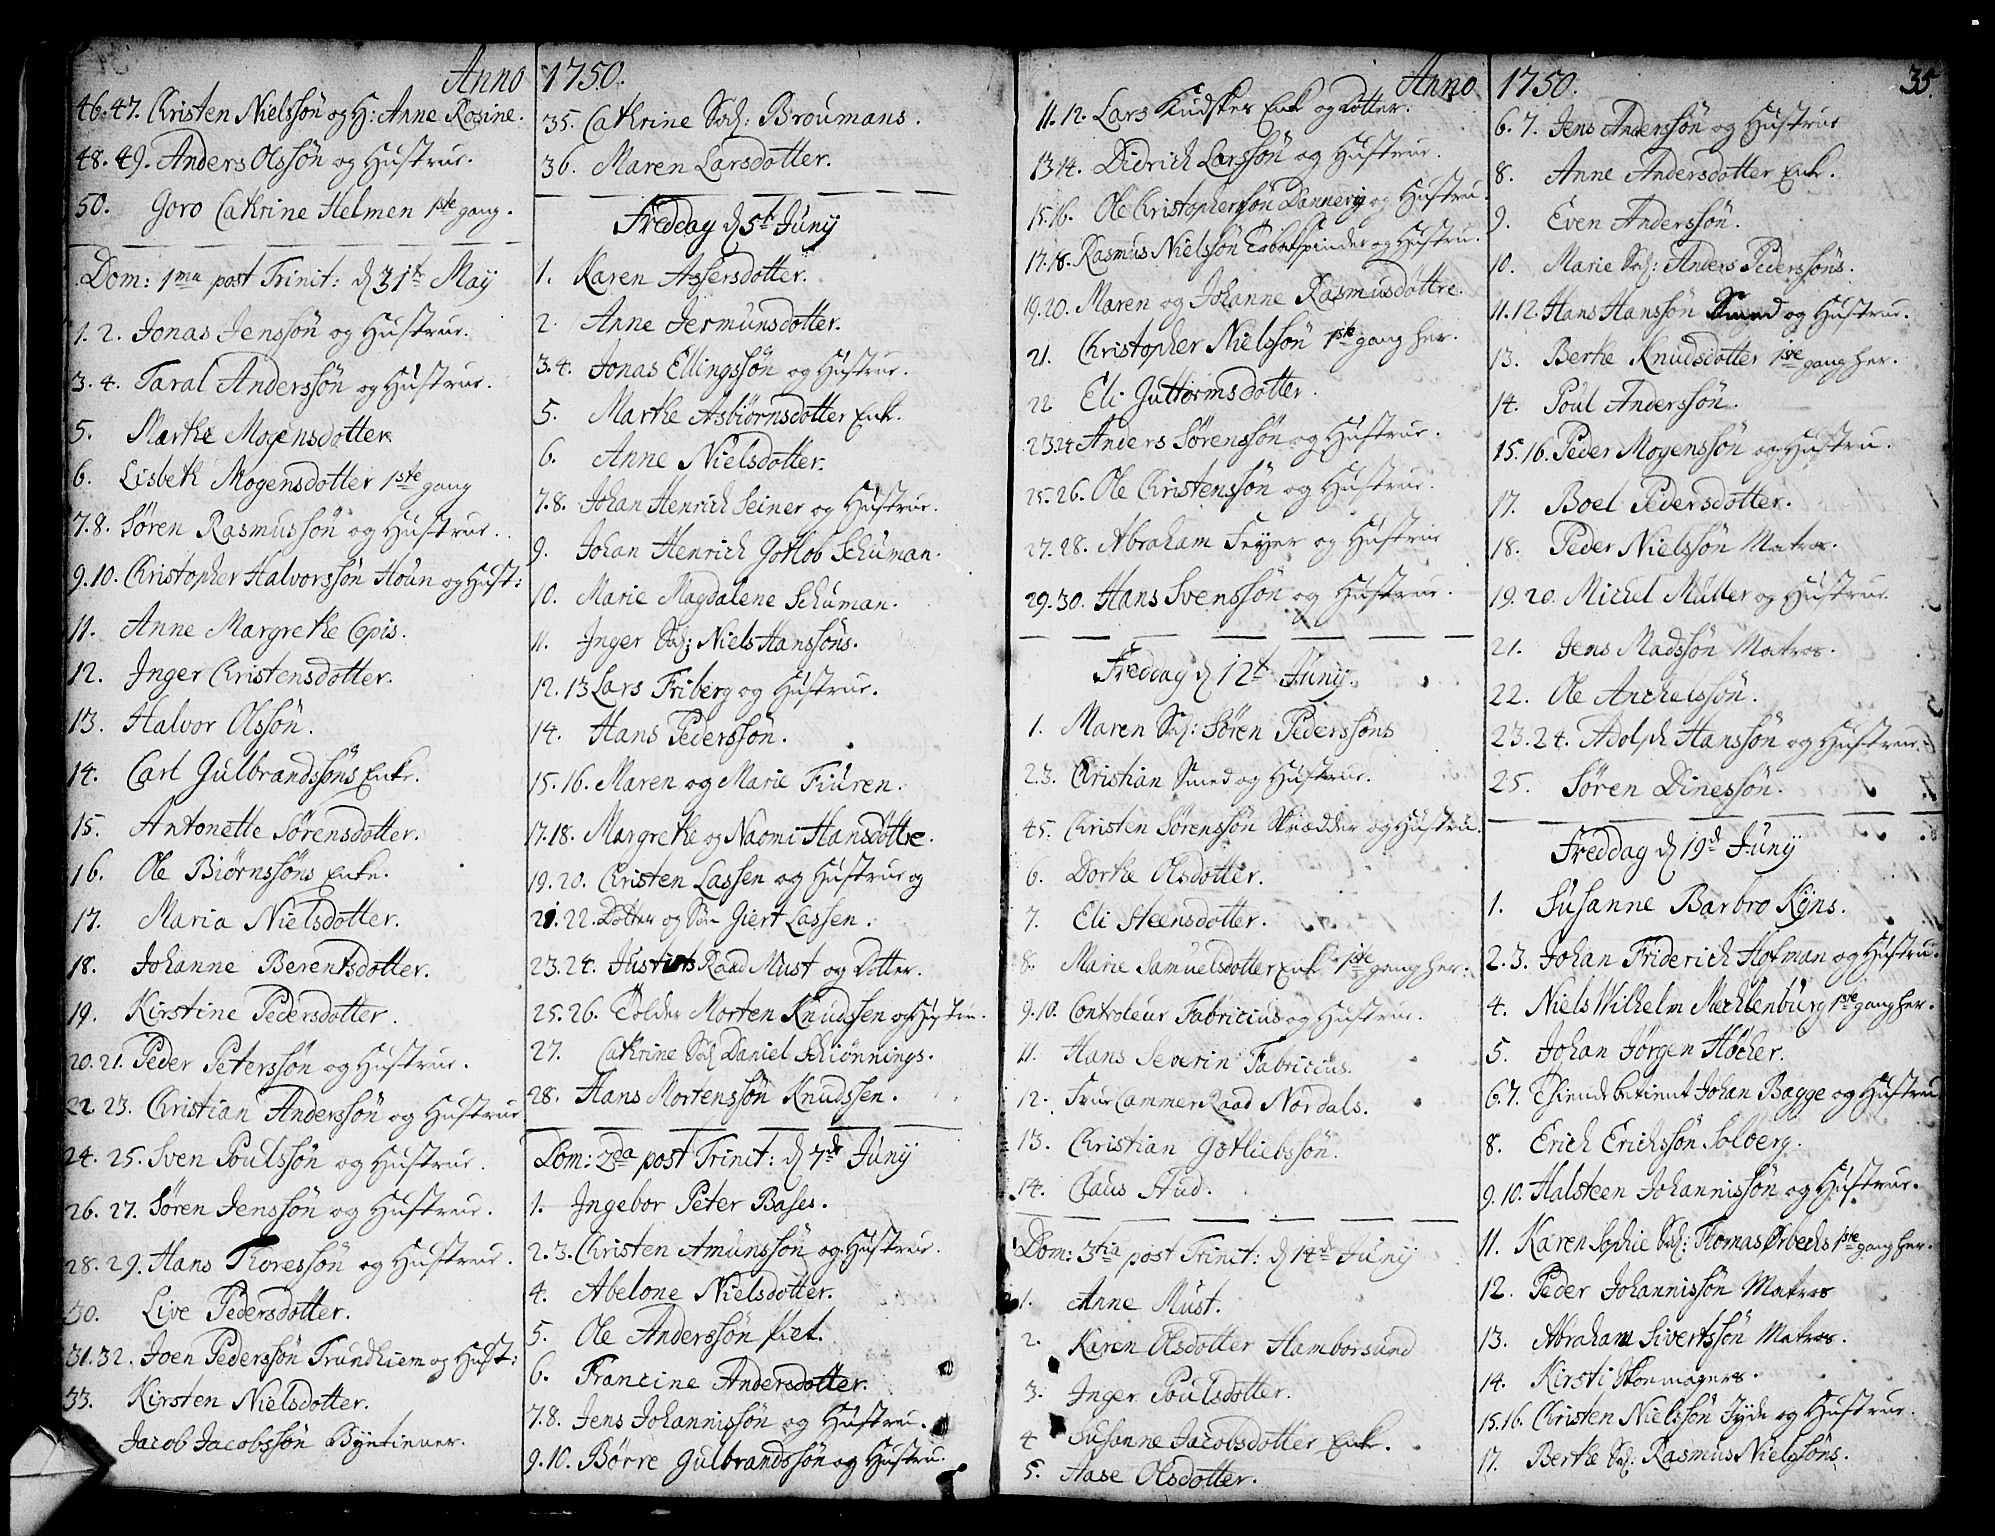 Anno 1750.
46. 47. Christen Nielssön og H: Anne Rosine.
48. 49. Anders Olssön og Hustrue.
50. Goro Cathrine Helmen 1ste gang.
Dom: 1ma post Trinit: d 31te May
1. 2. Jonas Jenssön og Hustrue.
3. 4. Taral Anderssön og Hustrue.
5. Marthe Mogensdotter
6. Lisbeth Mogensdotter 1ste gang
7. 8. Sören Rasmussön og Hustrue.
9. 10. Christopher Halvorssön Houn og Hust:
11. Anne Margrethe Opis.
12. Inger Christensdotter.
13. Halvor Olssön.
14. Carl Gulbrandssöns Enke.
15. Antonette Sörensdotter.
16. Ole Biörnssöns Enke.
17. Maria Nielsdotter.
18. Johanne Berentsdotter.
19. Kirstine Pedersdotter.
20. 21. Peder Peterssön og Hustrue.
22. 23. Christian Anderssön og Hustrue
24. 25. Sven Poulssön og Hustrue.
26. 27. Sören Jenssön og Hustrue.
28. 29. Hans Thoressön og Hustrue.
30. Live Pedersdotter.
31. 32. Joen Pederssön Trundhiem og Hust:
33. Kirsten Nielsdotter.
Jacob Jacobssön Byetiener.
35. Cathrine Sal: Broumans.
36. Maren Larsdotter.
Freddag d 5te Juny
1. Karen Assersdotter.
2. Anne Jermunsdotter.
3. 4. Jonas Ellingssön og Hustrue.
5. Marthe Asbiörnsdotter Enk.
6. Anne Nielsdotter.
7. 8. Johan Henrich Seiner og Hustrue.
9. Johan Henrich Gotlob Schuman.
10. Marie Magdalene Schuman.
11. Inger Sal: Niels Hanssöns.
12. 13 Lars Friberg og Hustrue.
14. Hans Pederssön.
15. 16. Maren og Marie Fiuren.
17. 18. Margrethe og Naomi Hansdöttre.
19. 20. Christen Lassen og Hustrue og
21. 22. Dotter og Sön Giert Lassen.
23. 24. Justits Raad Must og Dotter.
25. 26. Tolder Morten Knudssen og Hustrue.
27. Cathrine Sal: Daniel Schiönnings.
28. Hans Mortenssön Knudssen.
Dom: 2da post Trinit: d 7de Juny
1. Ingebor Peter Bases.
2. 3. Christen Amunssön og Hustrue.
4. Abelone Nielsdotter.
5. Ole Anderssön
6. Francine Andersdotter.
7. 8. Jens Johannissön og Hustrue.
9. 10. Börre Gulbrandssön og Hustru.
Anno 1750. 35.
11. 12. Lars Kudskes Enk og Dotter.
13 14. Didrich Larssön og Hustrue.
15. 16. Ole Christopherssön Dannevig og Hustru.
17. 18. Rasmus Nielssön og Hustru.
19. 20. Maren og Johanne Rasmusdöttre.
21. Christopher Nielssön 1ste gang her.
22 Eli Guttormsdotter.
23. 24 Anders Sörenssön og Hustrue.
25. 26. Ole Christenssön og Hustrue.
27. 28. Abraham Feyer og Hustrue
29. 30. Hans Svenssön og Hustrue.
Freddag d 12te Juny.
1. Maren Sal: Sören Pederssöns
2. 3. Christian Smed og Hustrue.
4 5. Christen Sörenssön Skrædder og Hustru.
6. Dorthe Olsdotter.
7. Eli Steensdotter.
8. Marie Samuelsdotter Enk 1ste gang her.
9. 10. Controleur Fabricius og Hustrue.
11. Hans Severin Fabricius.
12. Frue Cammer Raad Nordals.
13. Christian Gotliebssön.
14. Claus Aud.
Dom: 3tia post Trinit: d 14de Juny
1. Anne Must.
2. Karen Olsdotter Hamborsund
3. Inger Poulsdotter.
4 Susanne Jacobsdotter Enk.
5. Aase Olsdotter.
6. 7. Jens Anderssön og Hustrue
8. Anne Andersdotter Enk.
9. Even Anderssön.
10. Marie Sal: Anders Pederssöns.
11. 12. Hans Hanssön Smed og Hustrue.
13. Berthe Knudsdotter 1ste gang her.
14. Poul Anderssön.
15. 16. Peder Mogenssön og Hustru.
17. Boel Pedersdotter.
18. Peder Nielssön Matros.
19. 20. Michel Muller og Hustrue.
21. Jens Madssön Matros.
22. Ole Anchelssön.
23. 24. Adolph Hanssön og Hustrue.
25. Sören Dinessön.
Freddag d 19de Juny
1. Susanne Barbro Kyns.
2. 3. Johan Friderich Hofman og Hustru.
4. Niels Wilhelm Mechlenburg 1ste gang her.
5. Johan Jörgen Höcher.
6. 7. Tiendebetient Johan Bagge og Hustru
8. Erich Erichssön Solberg.
9. 10. Halsteen Johannissön og Hustrue.
11. Karen Sophie Sal: Thomas Ørbechs 1ste gang her.
12. Peder Johannissön Matros
13. Abraham Sivertssön Matros.
14. Kirsti Skomagers.
15. 16. Christen Nielssön Jyde og Hustrue.
17. Berthe Sal: Rasmus Nielssöns.